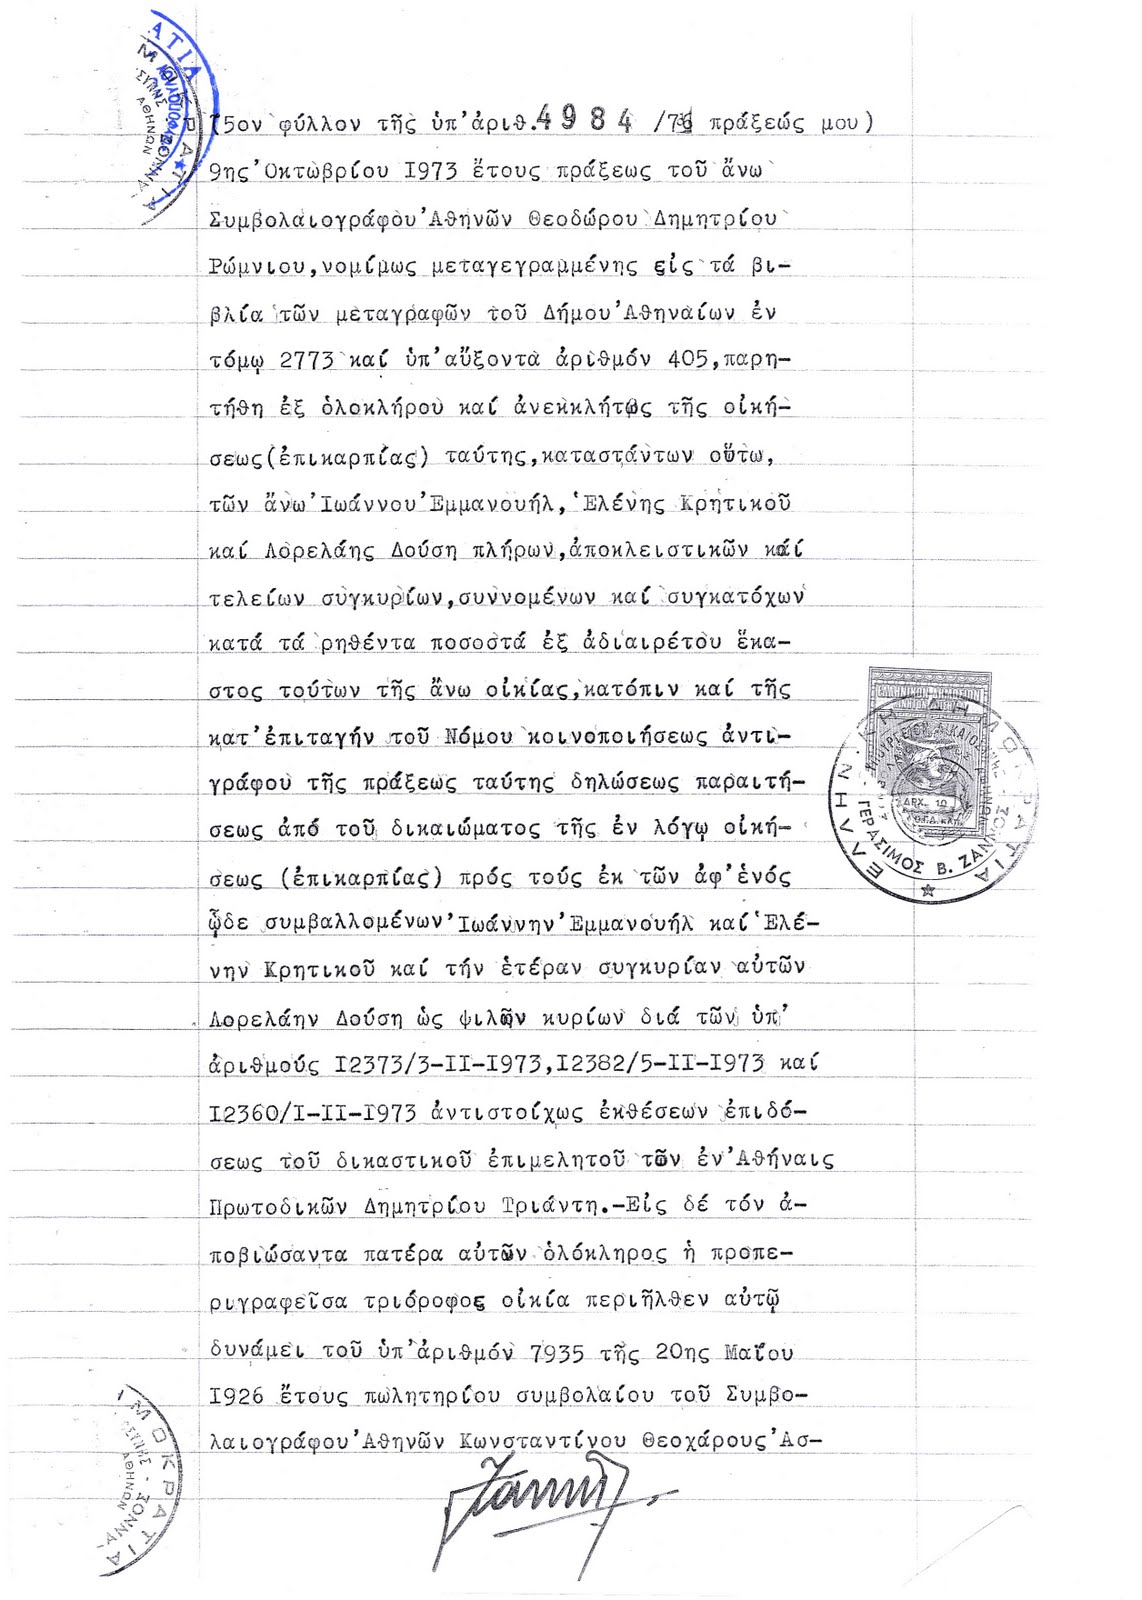 (5ον φύλλον τῆς ὑπ'ἀριθ.4984 /76 πράξεώς μου)
9ης Ὀκτωβρίου I973 ἔτους πράξεως τοῦ ἄνω
Συμβολαιογράφου Ἀθηνῶν Θεοδώρου Δημητρίου
Ρώμνιου,νομίμως μεταγεγραμμένης εἰς τά βι-
βλία τῶν μεταγραφῶν τοῦ Δήμου Ἀθηναίων ἐν
τόμῳ 2773 καί ὑπ'αὔξοντα ἀριθμόν 405,παρη-
τήθη ἐξ ὁλοκλήρου καί ἀνεκκλήτως τῆς οἰκή-
σεως(ἐπικαρπίας) ταύτης,καταστάντων οὕτω,
τῶν ἄνω Ἰωάννου Ἐμμανουήλ, Ἑλένης Κρητικοῦ
καί Λορελάης Δούση πλήρων,ἀποκλειστικῶν καί
τελείων συγκυρίων,συννομένων καί συγκατόχων
κατά τά ρηθέντα ποσοστά ἐξ ἀδιαιρέτου ἕκα-
στος τούτων τῆς ἄνω οἰκίας,κατόπιν καί τῆς
κατ'ἐπιταγήν τοῦ Νόμου κοινοποιήσεως ἀντι-
γράφου τῆς πράξεως ταύτης δηλώσεως παραιτή-
σεως ἀπό τοῦ δικαιώματος τῆς ἐν λόγῳ οἰκή-
σεως (ἐπικαρπίας) πρός τούς ἐκ τῶν ἀφ'ἑνός
ᾧδε συμβαλλομένων Ἰωάννην Ἐμμανουήλ καί Ἑλέ-
νην Κρητικοῦ καί τήν ἑτέραν συγκυρίαν αὐτῶν
Λορελάην Δούση ὡς ψιλῶν κυρίων διά τῶν ὑπ'
ἀριθμούς I2373/3-II-I973,I2382/5-II-I973 καί
I2360/I-II-I973 ἀντιστοίχως ἐκθέσεων ἐπιδό-
σεως τοῦ δικαστικοῦ ἐπιμελητοῦ τῶν ἐν Ἀθήναις
Πρωτοδικῶν Δημητρίου Τριάντη.-Εἰς δέ τόν ἀ-
ποβιώσαντα πατέρα αὐτῶν ὁλόκληρος ἡ προπε-
ριγραφεῖσα τριόροφος οἰκία περιῆλθεν αὐτῷ
δυνάμει τοῦ ὑπ'ἀριθμόν 7935 τῆς 20ης Μαΐου
I926 ἔτους πωλητηρίου συμβολαίου τοῦ Συμβο-
λαιογράφου Ἀθηνῶν Κωνσταντίνου Θεοχάρους Ἀσ-
ΕΛΛΗΝΙΚΗ ΔΗΜΟΚΡΑΤΙΑ
ΓΕΡΑΣΙΜΟΣ Β. ΖΑΝΝ
ΔΡΧ. 10
ΜΟΚΡΑΤΙΑ
ΑΘΗΝΩΝ